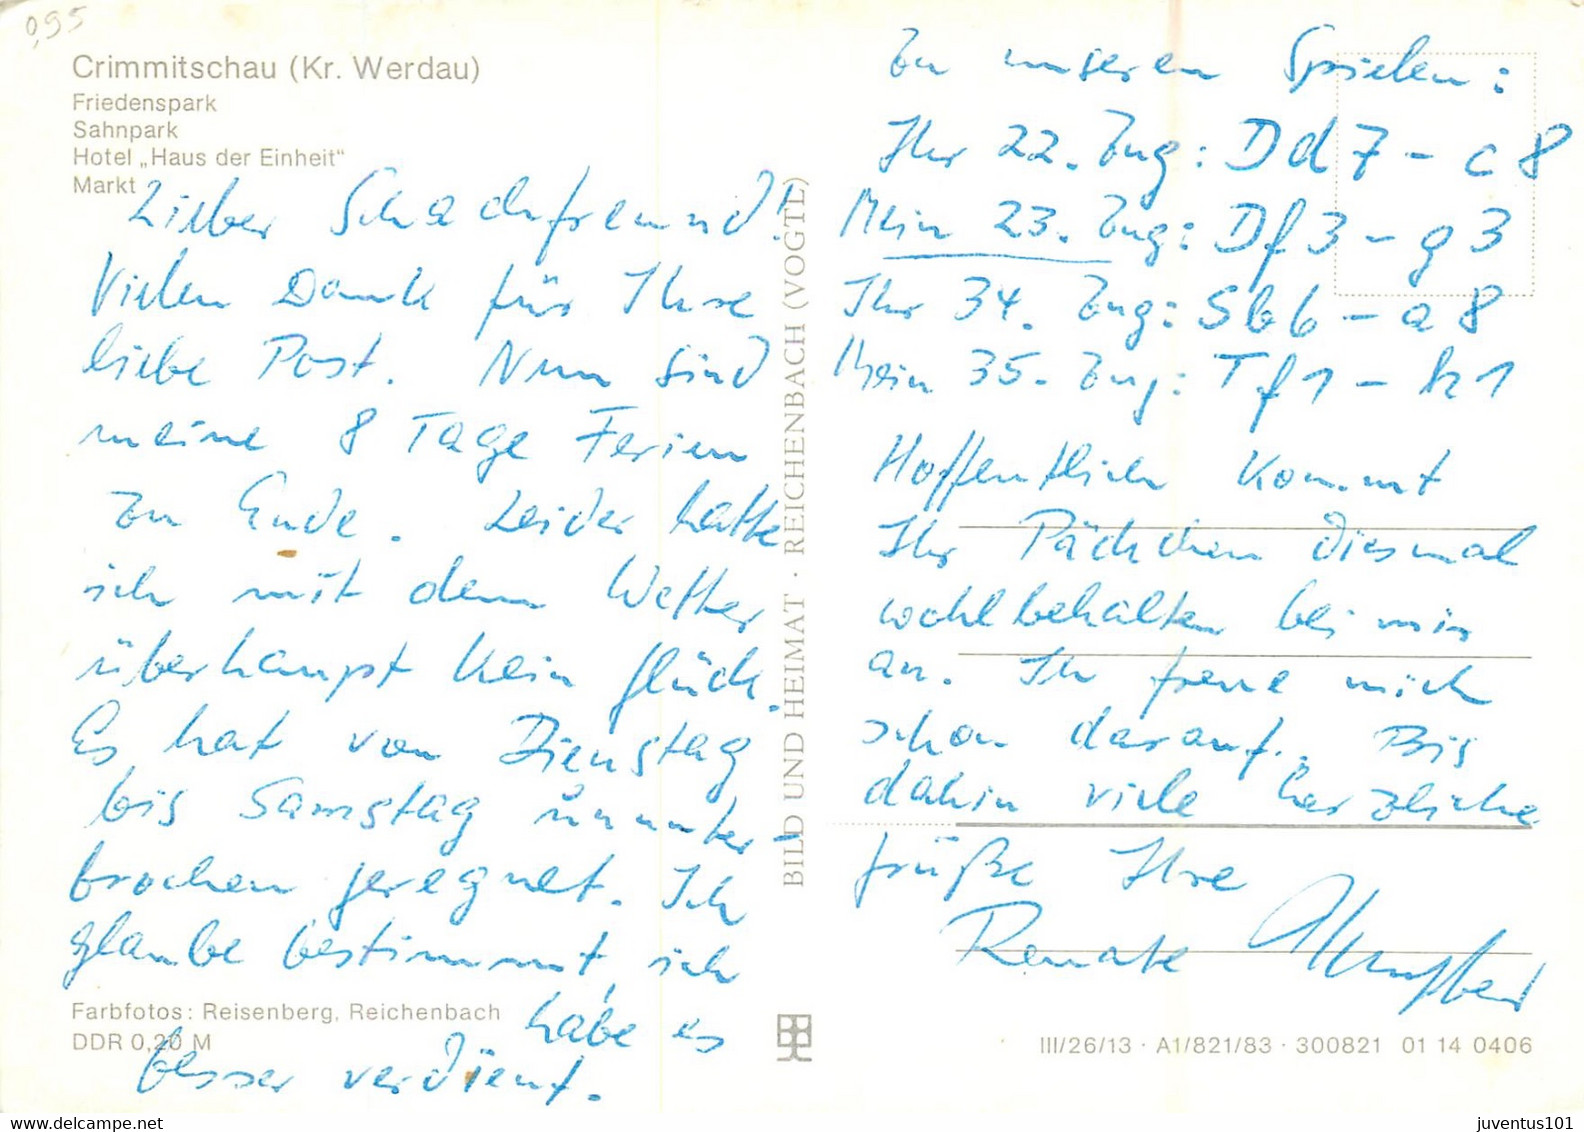 0,95
Crimmitschau (Kr. Werdau)
Friedenspark
Sahnpark
Hotel „Haus der Einheit"
Markt
Lieber Schachfreund!
Vielen Dank für Ihre
liebe Post. Nun sind
meine 8 Tage Ferien
zu Ende. Leider hatte
ich mit dem Wetter
überhaupt kein Glück.
Es hat von Dienstag
bis Samstag ununter-
brochen geregnet. Ich
glaube bestimmt, ich
habe es
besser verdient.
Farbfotos: Reisenberg, Reichenbach
DDR 0,20 M
BILD UND HEIMAT · REICHENBACH (VOGTL)
Zu unseren Spielen:
Ihr 22. Zug: Dd7 - c8
Mein 23. Zug: Df3 - g3
Ihr 34. Zug: Sb6 - a8
Mein 35. Zug: Tf1 - h1
Hoffentlich kommt
Ihr Päckchen diesmal
wohlbehalten bei mir
an. Ich freue mich
schon darauf. Bis
dahin viele herzliche
Grüße Ihre
Renate
III/26/13 · A1/821/83 · 300821 01 14 0406
juventus101